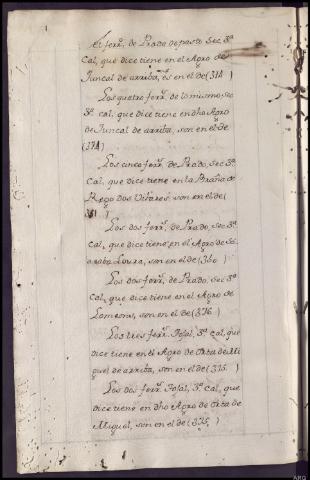 El ferr.ˢ de Prado de pasto Sec. 3.ª
Cal, que dice tiene en el Agro de
Juncal de arriba, es en el de (314 )
Los quatro ferr.ˢ de lo mismo, sec.
3.ª cal, que dice tiene en dho Agro
de Juncal de arriba, son en el de
(374)
Los cinco ferr.ˢ de Prado, Sec. 3.ª
Cal, que dice tiene en la Braña de
Rego dos Vitares, son en el de (
351 )
Los dos ferr.ˢ de Prado, Sec. 3.ª
Cal, que dice tiene en el Agro de
Loura, son en el de (360 )
Los dos ferr.ˢ de Prado, Sec. 3.ª
Cal, que dice tiene en el Agro de
son en el de (376 )
Los tres ferr.ˢ Tojal, 3.ª Cal, que
dice tiene en el Agro de Orta de Mi
guel de arriba, son en el de (375 )
Los dos ferr.ˢ Tojal, 3.ª Cal, que
dice tiene en dho Agro de Orta de
Miguel, son en el de (375 )
ARG